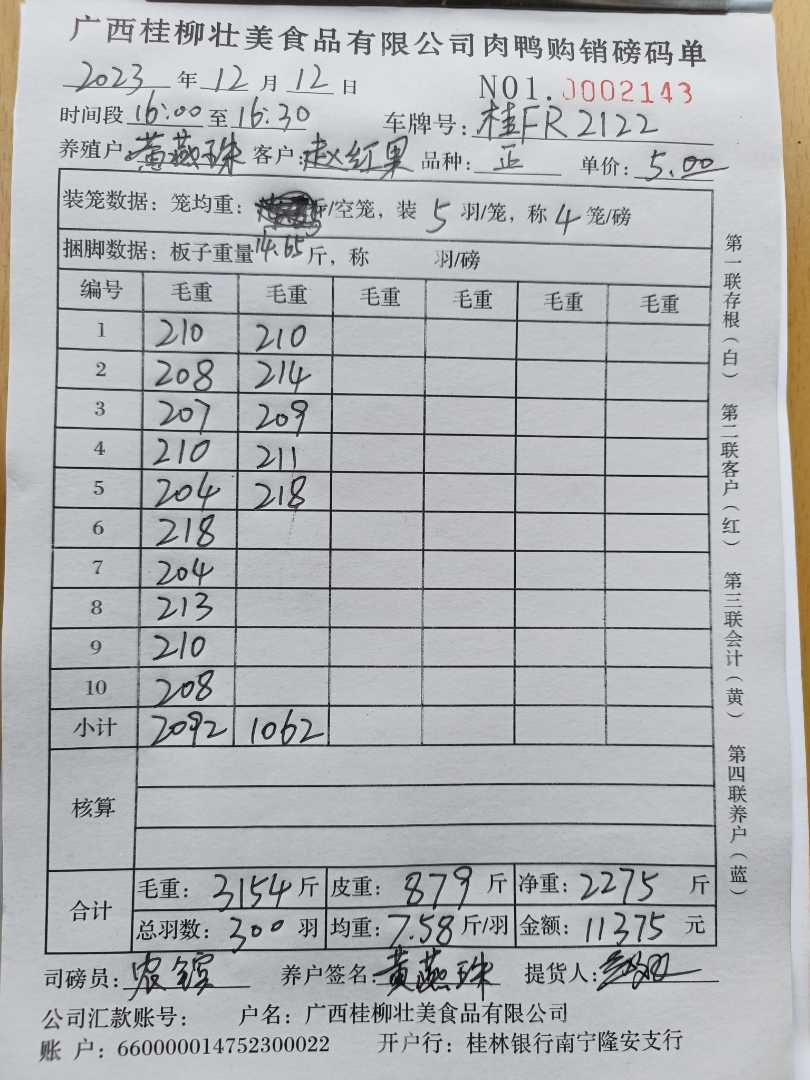 广西桂柳壮美食品有限公司肉鸭购销磅码单
2023 年 12 月 12 日 NO1. 0002143
时间段 16:00 至 16:30 车牌号: 桂FR2122
养殖户: 黄燕珠 客户: 赵红果 品种: 正 单价: 5.00
装笼数据: 笼均重: 斤/空笼, 装 5 羽/笼, 称 4 笼/磅
捆脚数据: 板子重量 14.65 斤, 称 羽/磅
编号 毛重 毛重 毛重 毛重 毛重 毛重
1 210 210
2 208 214
3 207 209
4 210 211
5 204 218
6 218
7 204
8 213
9 210
10 208
小计 2092 1062
核算
合计 毛重: 3154 斤 皮重: 879 斤 净重: 2275 斤
总羽数: 300 羽 均重: 7.58 斤/羽 金额: 11375 元
司磅员: 农 养户签名: 黄燕珠 提货人:
公司汇款账号: 户名: 广西桂柳壮美食品有限公司
账 户: 660000014752300022 开户行: 桂林银行南宁隆安支行
第一联存根(白) 第二联客户(红) 第三联会计(黄) 第四联养户(蓝)